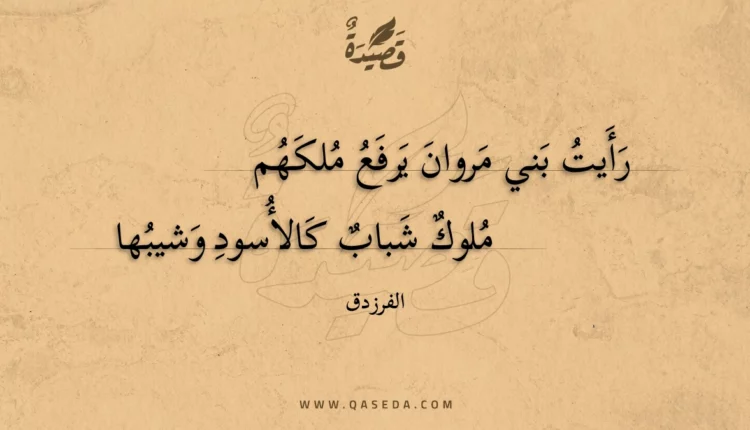 قَصِيْدَةٌ
رَأَيتُ بَني مَروانَ يَرفَعُ مُلكَهُم
مُلوكٌ شَبابٌ كَالأُسودِ وَشيبُها
الفرزدق
WWW.QASEDA.COM